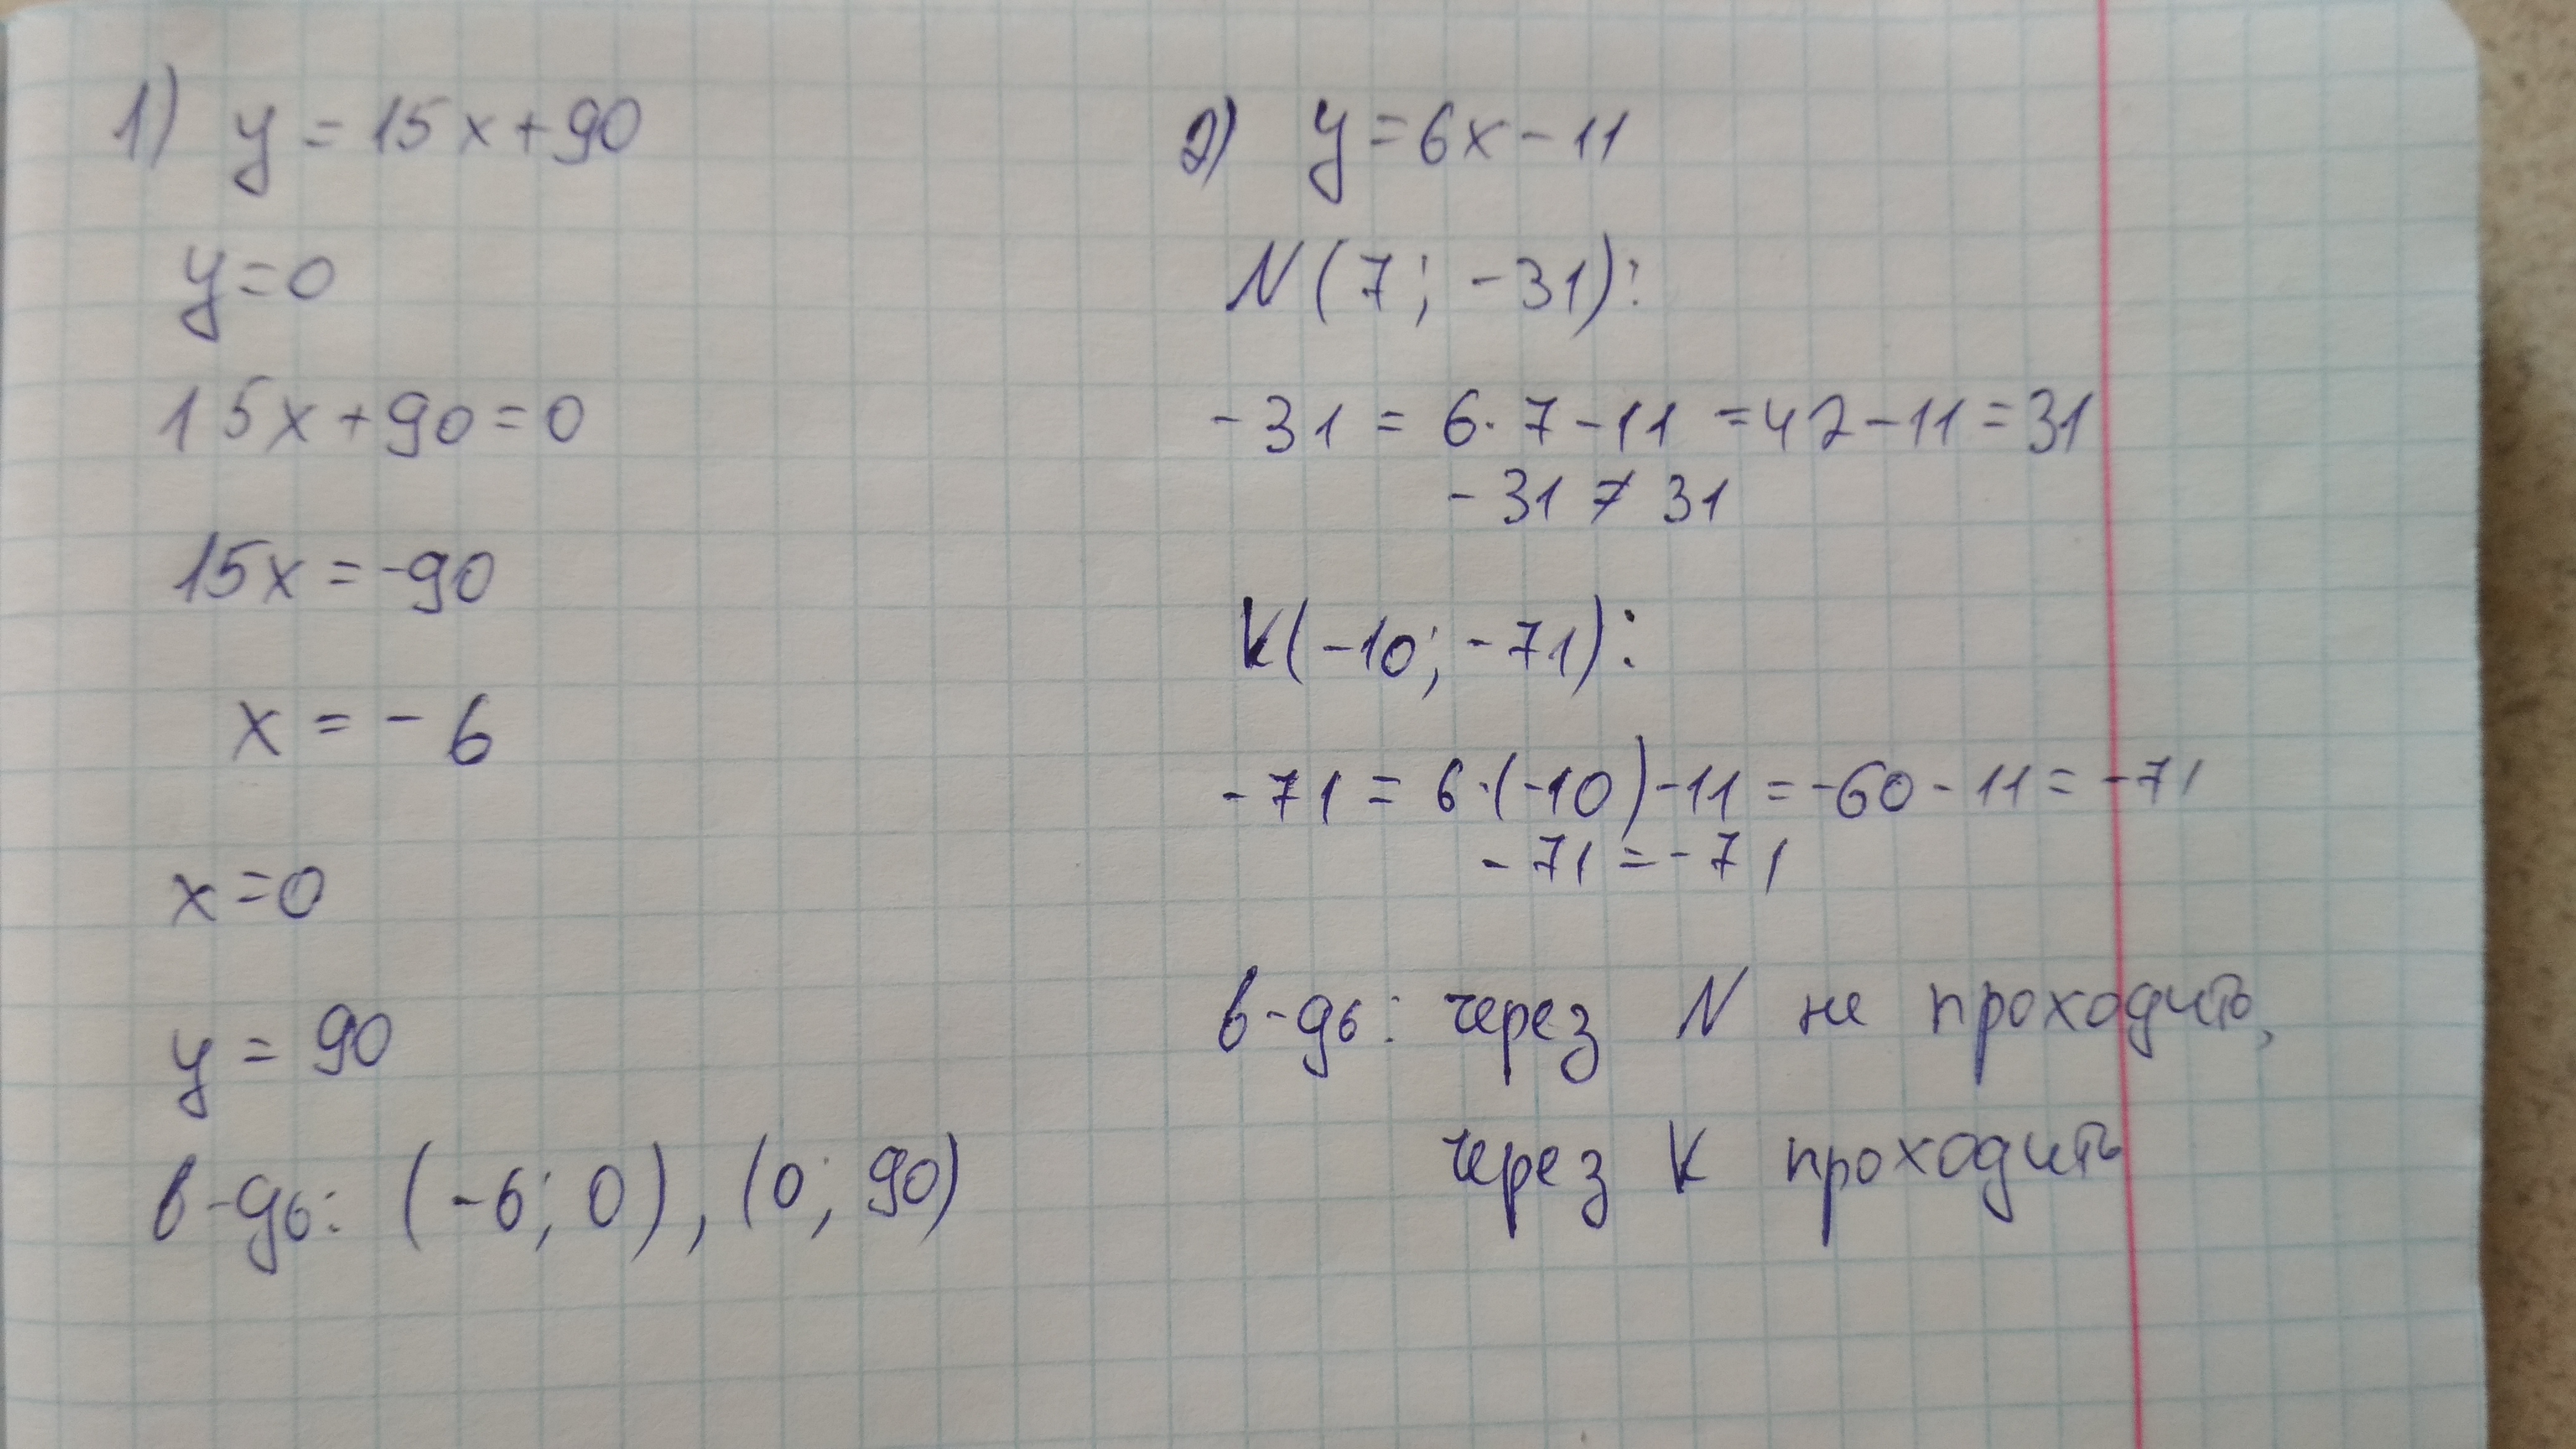 1) y = 15x + 90
y = 0
15x + 90 = 0
15x = -90
x = - 6
x = 0
y = 90
в-дь: (-6; 0), (0; 90)
2) y = 6x - 11
N(7; -31):
-31 = 6·7 - 11 = 42 - 11 = 31
-31 ≠ 31
K(-10; -71):
-71 = 6·(-10) - 11 = -60 - 11 = -71
-71 = -71
в-дь: через N не проходить,
через K проходить